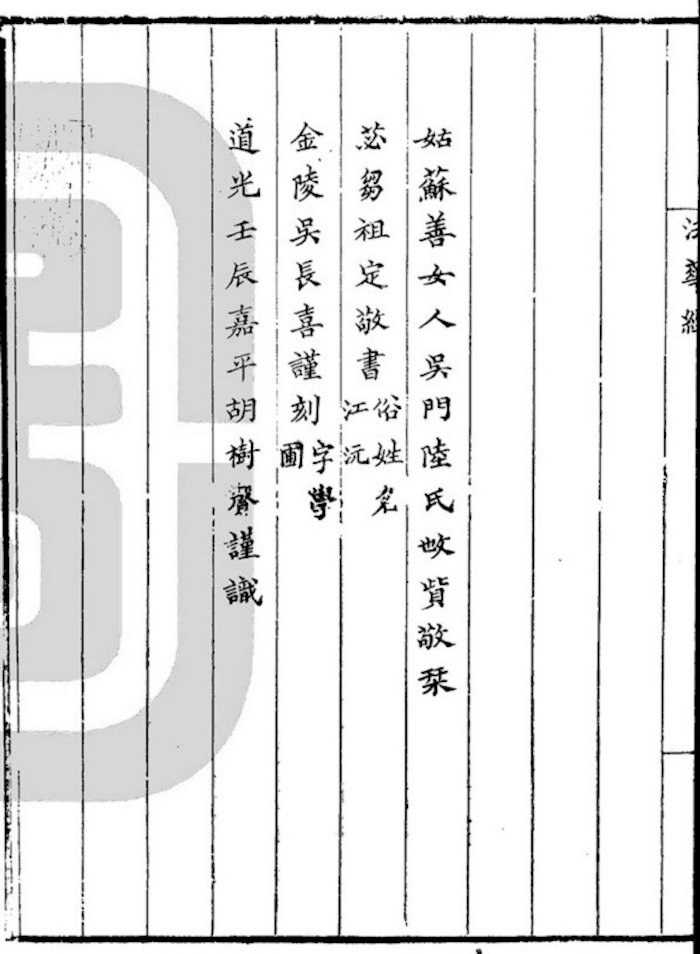 法華經
姑蘇善女人吳門陸氏𢻱貲敬栞
苾芻祖定敬書俗姓名江沅
金陵吳長喜謹刻字學圃
道光壬辰嘉平胡樹聲謹識